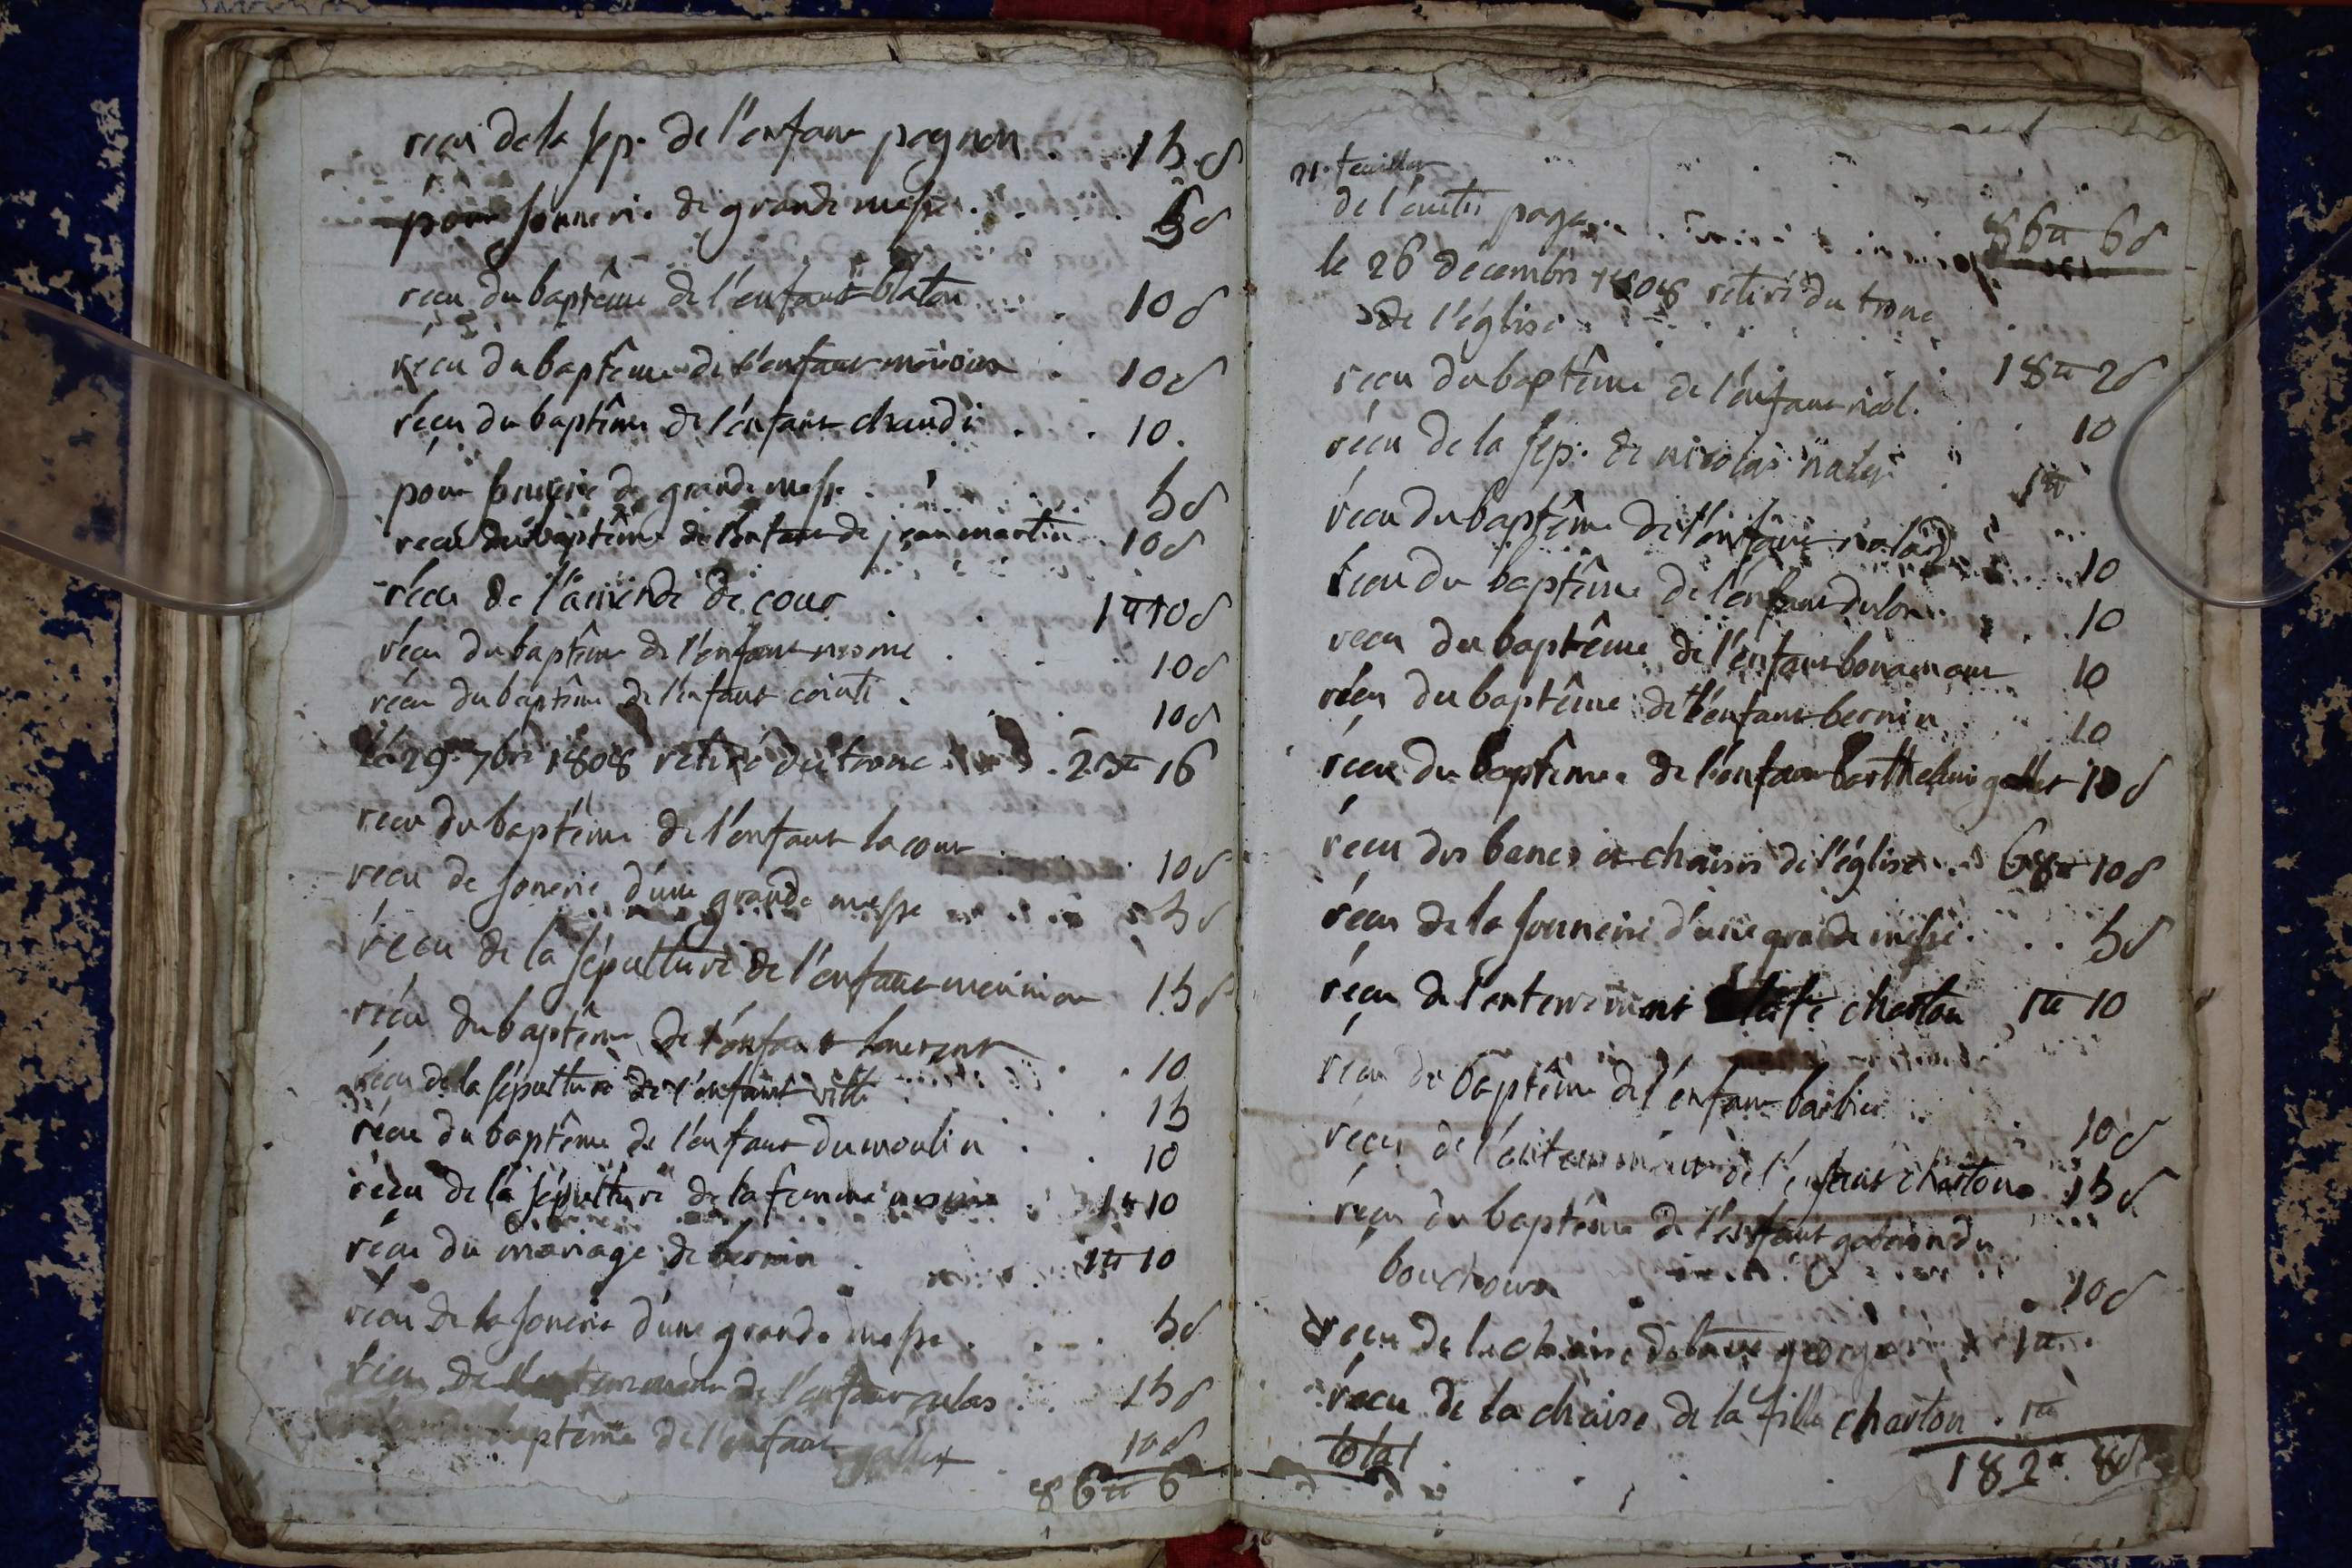 recu de la sep. de l'enfant pognon . 15 s
pour sonnerie de grande messe . . . . 5 s
recu du baptême de l'enfant blaton . 10 s
recu du baptême de l'enfant . 10 s
recu du baptême de l'enfant chaudi . . 10.
pour sonnerie de grande messe . 5 s
recu du baptême de l'enfant de jean martin . 10 s
recu de l'amende de cour . . 1 tt 10 s
recu du baptême de l'enfant . . . 10 s
recu du baptême de l'enfant cointi . . 10 s
le 29 7bre 1808 retiré du tronc . 25 tt 16
recu du baptême de l'enfant lacour . 10 s
recu de sonerie d'une grande messe 5 s
recu de la sépulture de l'enfant 15 s
recu du baptême de l'enfant . . 10
recu de la sépulture de l'enfant . . 15
recu du baptême de l'enfant dumoulin . . 10
recu de la sépulture de la femme . 1 tt 10
recu du mariage de bernin . . 1 tt 10
recu de la sonerie d'une grande messe . . . 5 s
recu de l'enterrement de l'enfant . . 15 s
baptême de l'enfant gallet 10 s
86 tt 6
21. feuillet
de l'autre page 86 tt 6 s
le 26 décembre 1808 retiré du tronc
de l'église . 18 tt 2 s
recu du baptême de l'enfant . . 10
recu de la sep. de nicolas . 1 tt
recu du baptême de l'enfant . 10
recu du baptême de l'enfant . . 10
recu du baptême de l'enfant bonamour 10
recu du baptême de l'enfant bernin . 10
recu du baptême de l'enfant barthelemi gallet 10 s
recu des bancs et chaises de l'église . . 68 tt 10 s
recu de la sonnerie d'une grande messe . . . 5 s
recu de l'enterrement charton 1 tt 10
recu du baptême de l'enfant barbier . 10 s
recu de l'enterrement de l'enfant charton 15 s
recu du baptême de l'enfant du
10 s
recu de la chaise 1 tt
recu de la chaise de la fille charton . 1 tt
total 182 tt 8 s